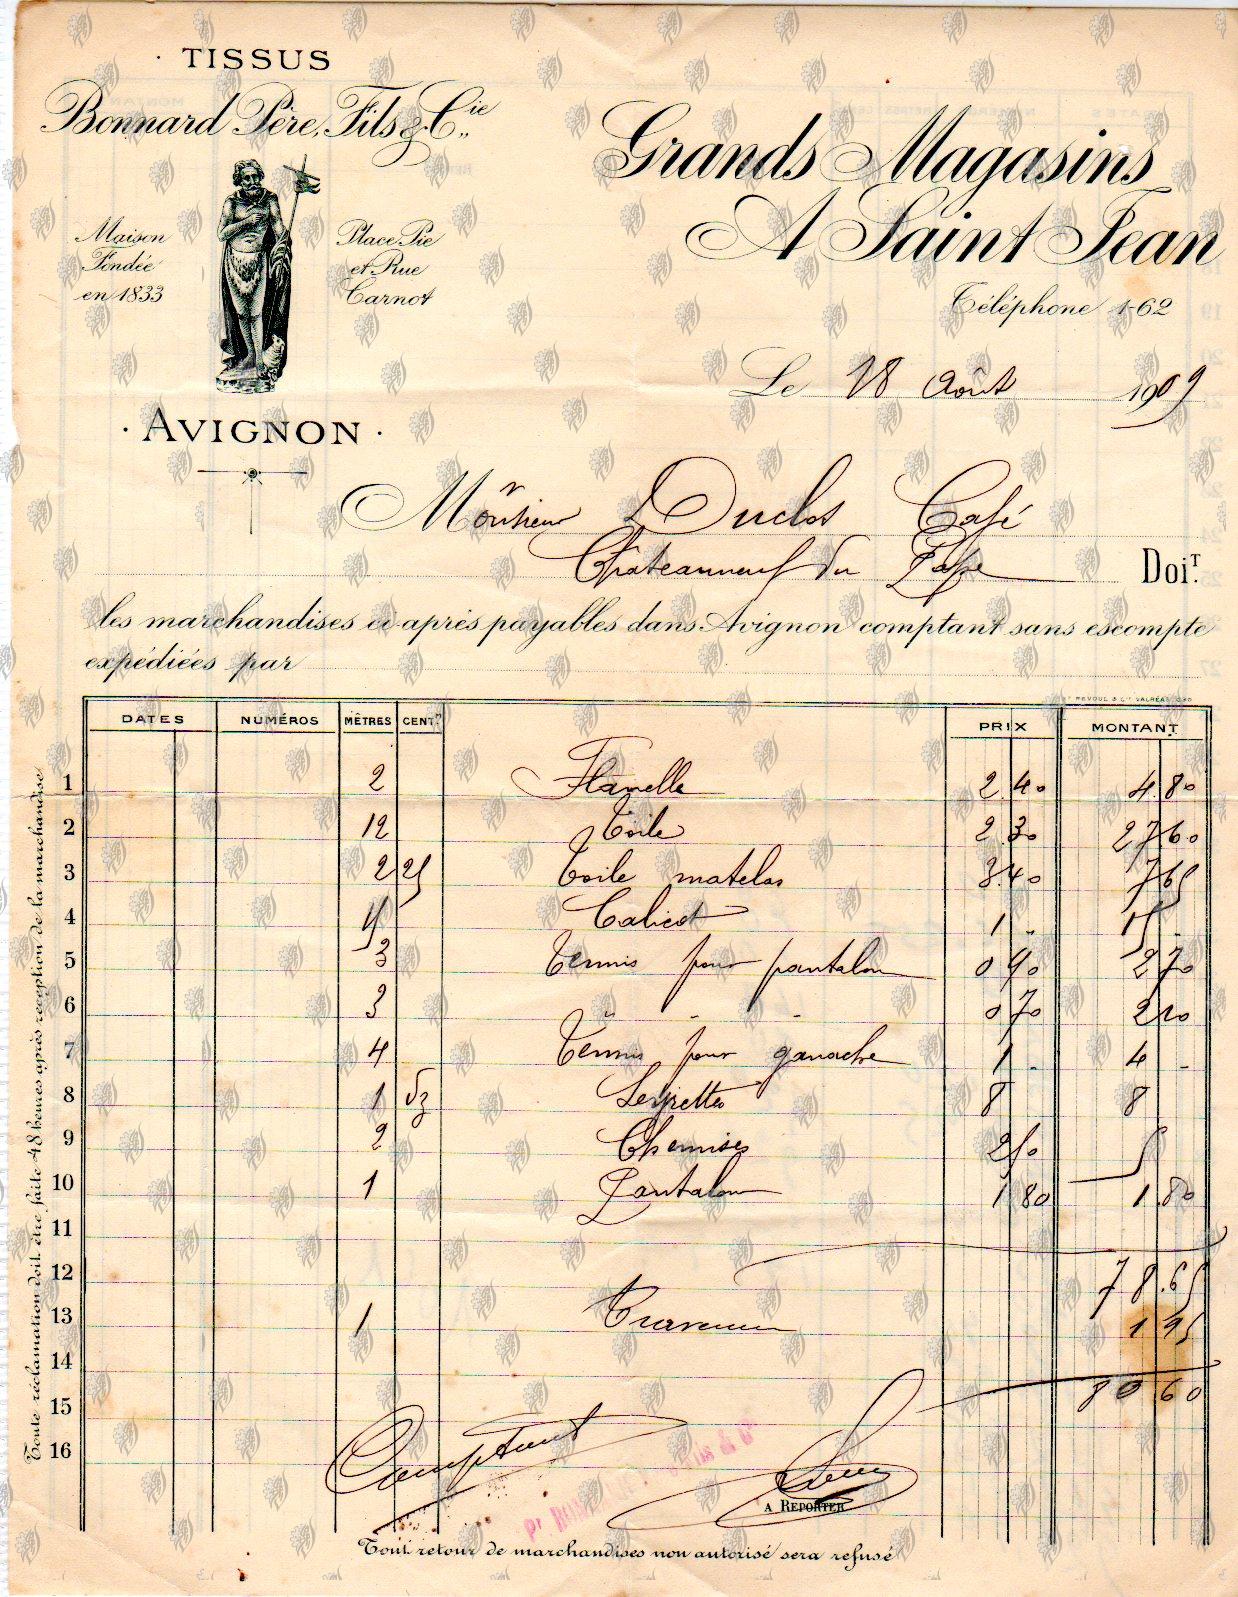 TISSUS
Bonnard Père, Fils & Cie
Grands Magasins
A Saint Jean
Maison Fondée en 1833
Place Pie et Rue Carnot
Téléphone 1-62
Le 18 Août 1909
· AVIGNON ·
Monsieur Duclos Café
Châteauneuf du Pape DoiT.
les marchandises ci-après payables dans Avignon comptant sans escompte
expédiées par
DATES NUMÉROS MÈTRES CENT. PRIX MONTANT
1 2 Flanelle 2.40 4.80
2 12 Toile 2.30 27.60
3 2 25 Toile matelas 3.40 7.65
4 15 Calicot 1 .. 15 -
5 3 Tennis pour pantalon 0 90 2 70
6 3 " - - 0 70 2 10
7 4 Tennis pour ganache 1 - 4 -
8 1 dz 8 8
9 2 Chemises 2 50 5
10 1 Pantalon 1 80 1.80
11
12 78.65
13 1 1 95
14
15 80 60
16
Comptant
A REPORTER
Tout retour de marchandises non autorisé sera refusé
Toute réclamation doit être faite 48 heures après réception de la marchandise